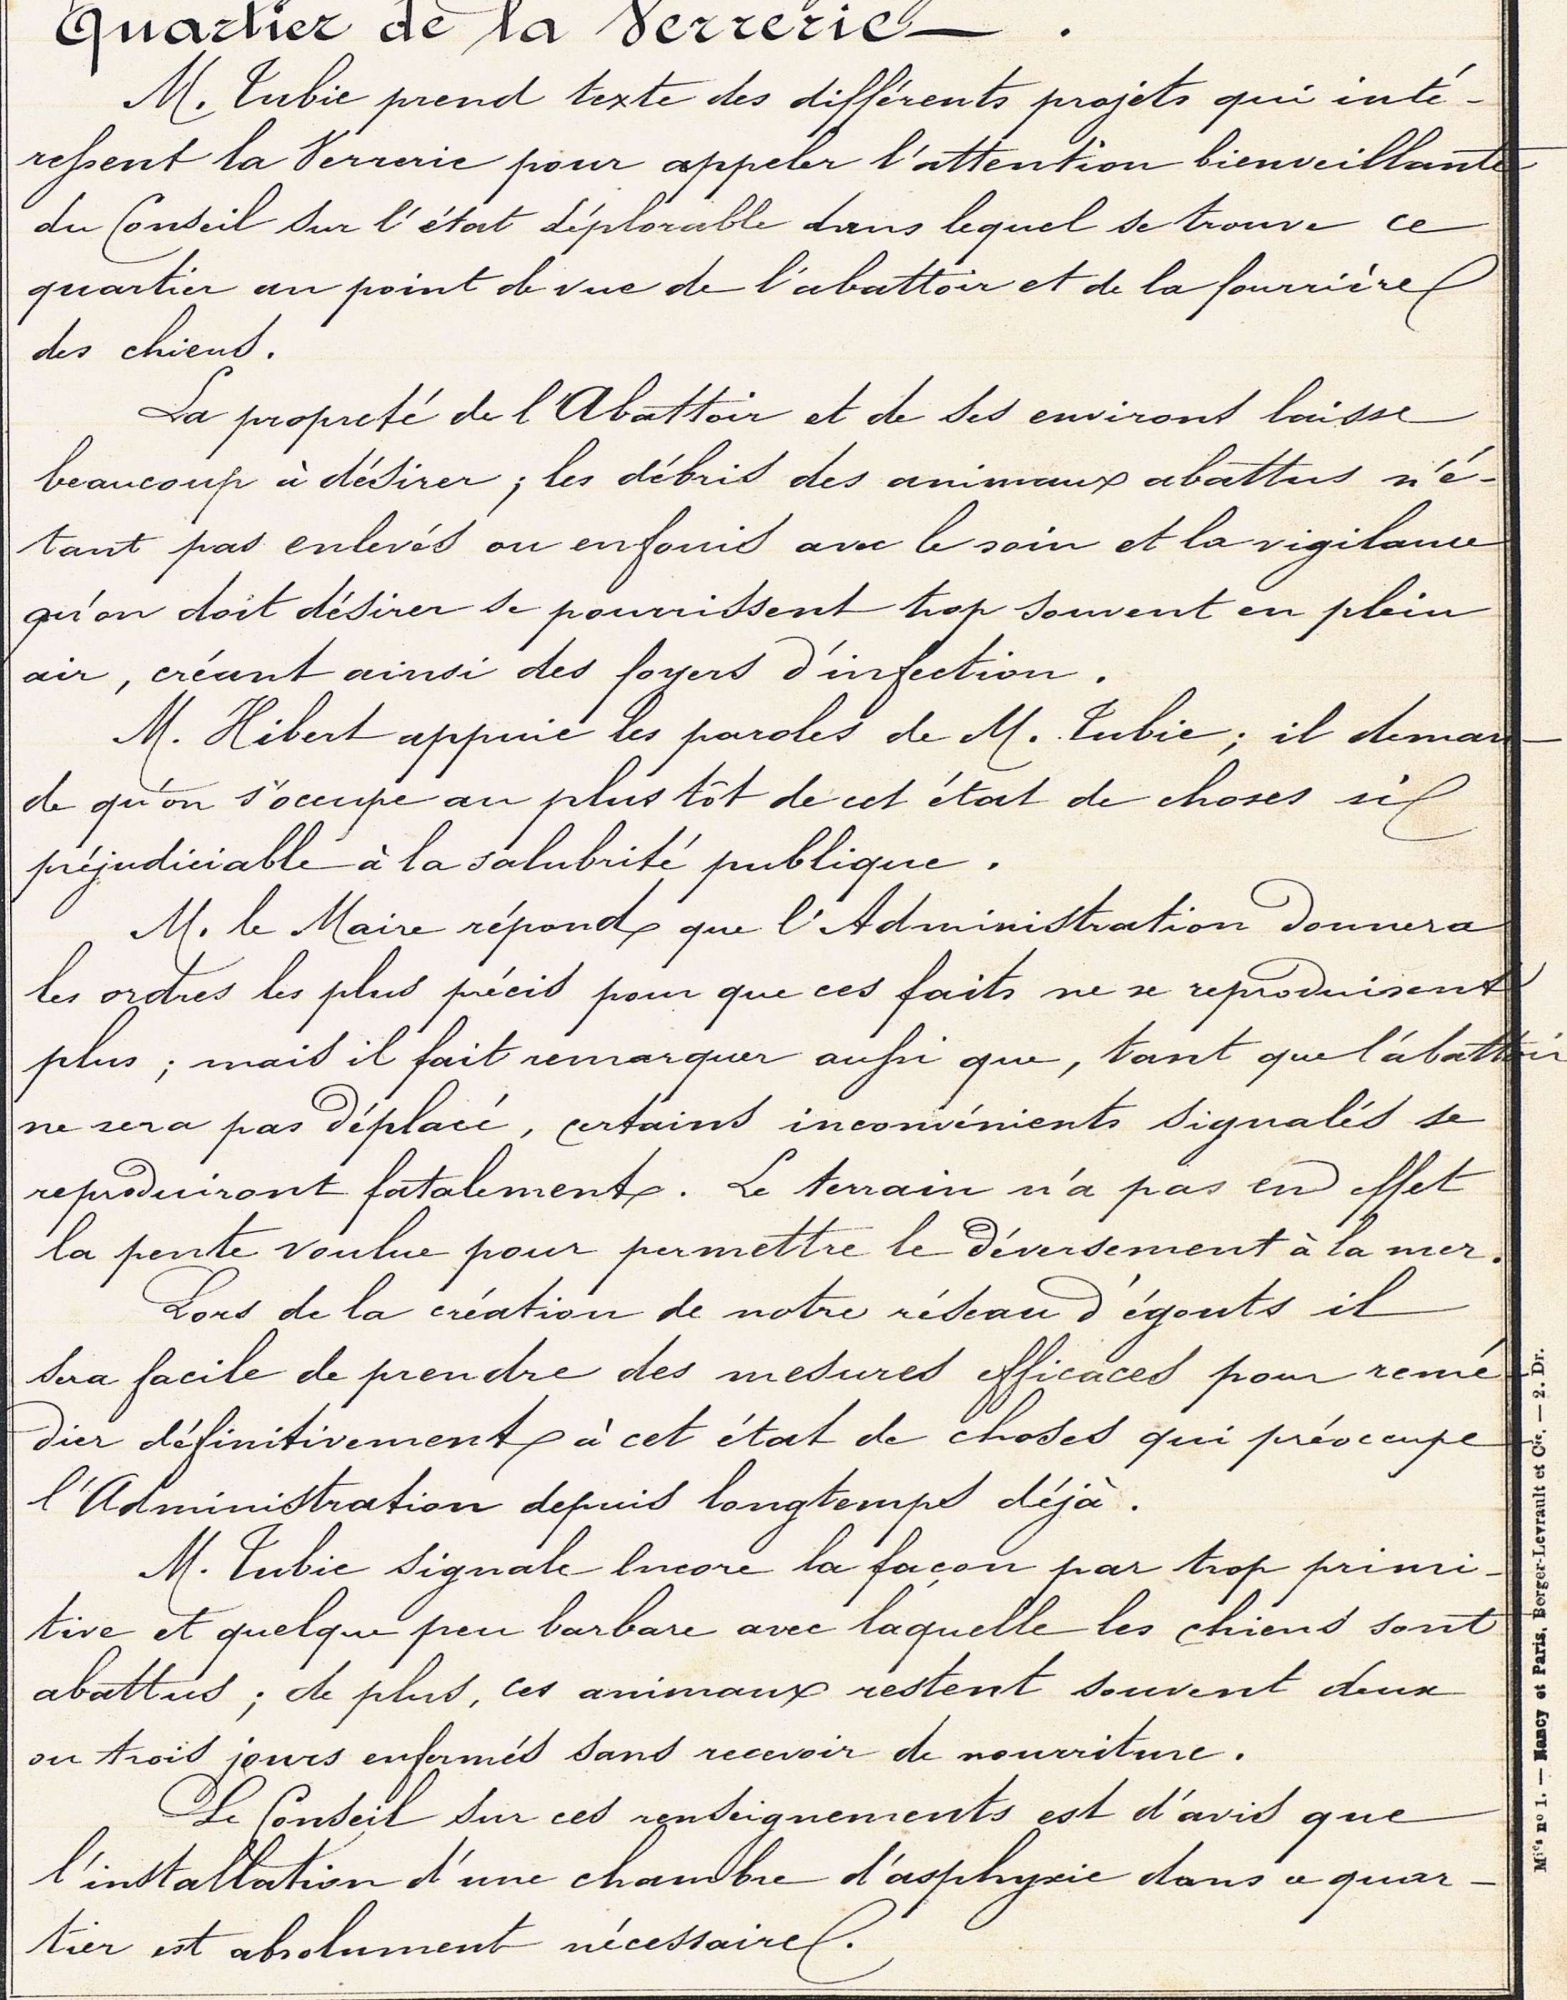 Quartier de la Verrerie — .
M. Tubie prend texte des différents projets qui inté-
ressent la Verrerie pour appeler l'attention bienveillante
du Conseil sur l'état déplorable dans lequel se trouve ce
quartier au point de vue de l'abattoir et de la fourrière
des chiens.
La propreté de l'Abattoir et de ses environs laisse
beaucoup à désirer ; les débris des animaux abattus n'é-
tant pas enlevés ou enfouis avec le soin et la vigilance
qu'on doit désirer se pourrissent trop souvent en plein
air, créant ainsi des foyers d'infection.
M. Hibert appuie les paroles de M. Tubie ; il deman-
de qu'on s'occupe au plus tôt de cet état de choses si
préjudiciable à la salubrité publique.
M. le Maire répond que l'Administration donnera
les ordres les plus précis pour que ces faits ne se reproduisent
plus ; mais il fait remarquer aussi que, tant que l'abattoir
ne sera pas déplacé, certains inconvénients signalés se
reproduiront fatalement. Le terrain n'a pas en effet
la pente voulue pour permettre le déversement à la mer.
Lors de la création de notre réseau d'égouts il
sera facile de prendre des mesures efficaces pour remé-
dier définitivement à cet état de choses qui préoccupe
l'Administration depuis longtemps déjà.
M. Tubie signale encore la façon par trop primi-
tive et quelque peu barbare avec laquelle les chiens sont
abattus ; de plus, ces animaux restent souvent deux
ou trois jours enfermés sans recevoir de nourriture.
Le Conseil sur ces renseignements est d'avis que
l'installation d'une chambre d'asphyxie dans ce quar-
tier est absolument nécessaire.
Mies no 1. — Nancy et Paris, Berger-Levrault et Cie. — 2. Dr.